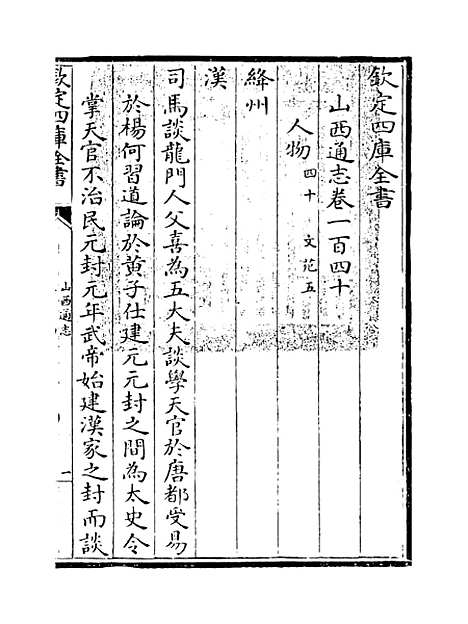 欽定四庫全書
山西通志卷一百四十
人物四十 文苑五
絳州
漢
司馬談龍門人父喜為五大夫談學天官於唐都受易
於楊何習道論於黃子仕建元元封之間為太史令
掌天官不治民元封元年武帝始建漢家之封而談
欽定四庫全書
山西通志
一